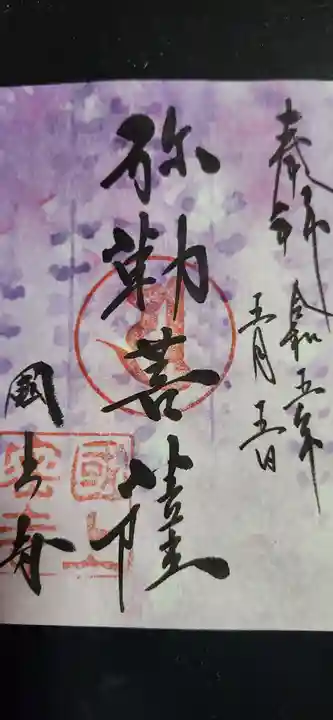 奉拝
令和五年
五月五日
弥勒菩薩
国上寺